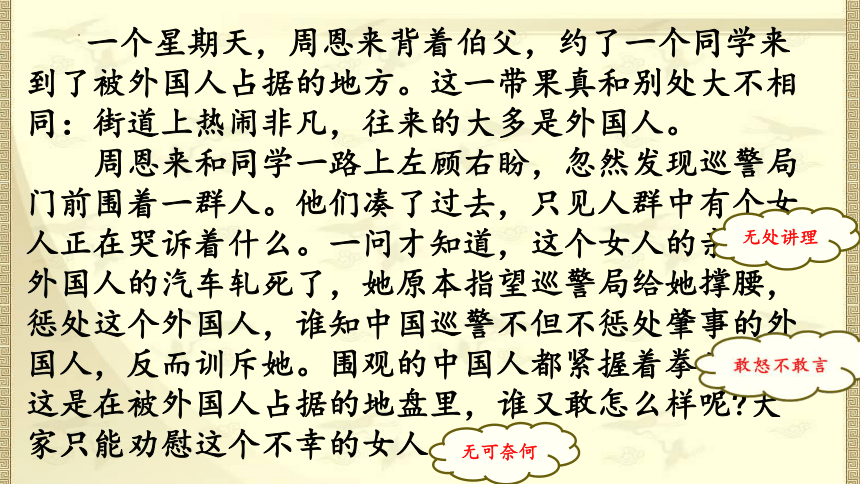 一个星期天，周恩来背着伯父，约了一个同学来
到了被外国人占据的地方。这一带果真和别处大不相
同：街道上热闹非凡，往来的大多是外国人。
周恩来和同学一路上左顾右盼，忽然发现巡警局
门前围着一群人。他们凑了过去，只见人群中有个女
人正在哭诉着什么。一问才知道，这个女人的
无处讲理
外国人的汽车轧死了，她原本指望巡警局给她撑腰，
惩处这个外国人，谁知中国巡警不但不惩处肇事的外
国人，反而训斥她。围观的中国人都紧握着拳
敢怒不敢言
这是在被外国人占据的地盘里，谁又敢怎么样呢?大
家只能劝慰这个不幸的女人
无可奈何